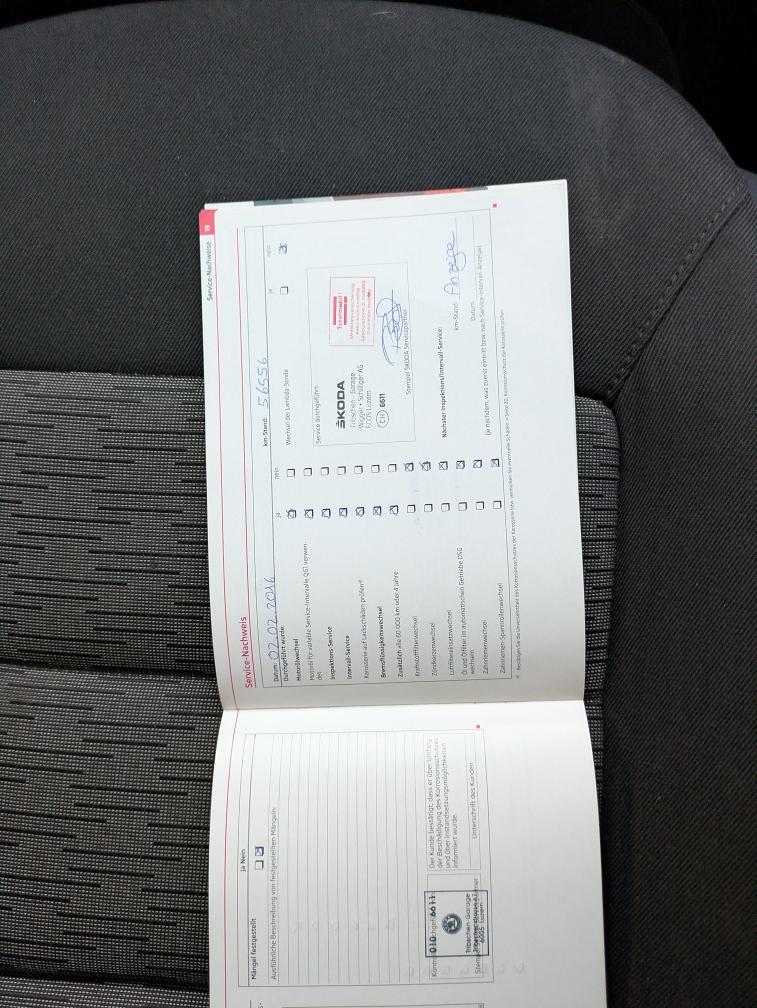 Ja Nein
Mängel festgestellt
Ausführliche Beschreibung von festgestellten Mängeln:
Der Kunde bestätigt, dass er über Umfang
der Beschädigung des Korrosionsschutzes
und über Instandsetzungsmöglichkeiten
informiert wurde.
Unterschrift des Kunden
010 6611
Tribschen-Garage
6005 Luzern
Service-Nachweise 19
Service-Nachweis
Datum: 02.02.2016 km-Stand: 56556
Durchgeführt wurde: ja nein
Motorölwechsel
Motoröl für variable Service-Intervalle QG1 verwen-
det
Inspektions-Service
Intervall-Service
Karosserie auf Lackschäden prüfen
Bremsflüssigkeitswechsel
Zusätzlich alle 60 000 km oder 4 Jahre
Kraftstofffilterwechsel
Zündkerzenwechsel
Luftfiltereinsatzwechsel
Öl und Ölfilter im automatischen Getriebe DSG
wechseln
Zahnriemenwechsel
Zahnriemen-Spannrollenwechsel
ja nein
Wechsel der Lambda-Sonde
Service durchgeführt:
ŠKODA
Tribschen-Garage
Wismer + Schilliger AG
6005 Luzern
CH 6611
Totalmobil!
Stempel ŠKODA Servicepartner
Nächster Inspektions/Intervall-Service:
km-Stand: Anzeige
Datum:
(je nachdem, was zuerst eintritt bzw. nach Service-Intervall-Anzeige)